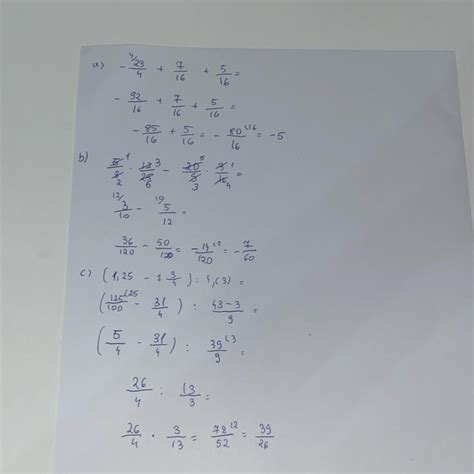 a) - ⁴⁄23/4 + 7/16 + 5/16 =
- 92/16 + 7/16 + 5/16 =
- 85/16 + 5/16 = - 80/16 (16 = -5
b) 1/2 · 3/5 - 5/3 · 1/4 =
12/ 3/10 - 10/ 5/12 =
36/120 - 50/120 = - 14/120 (2 = - 7/60
c) (1,25 - 7 3/4) : 4,(3) =
(125/100 (25 - 31/4) : 43-3/9 =
(5/4 - 31/4) : 39/9 (3 =
26/4 : 13/3 =
26/4 · 3/13 = 78/52 (2 = 39/26